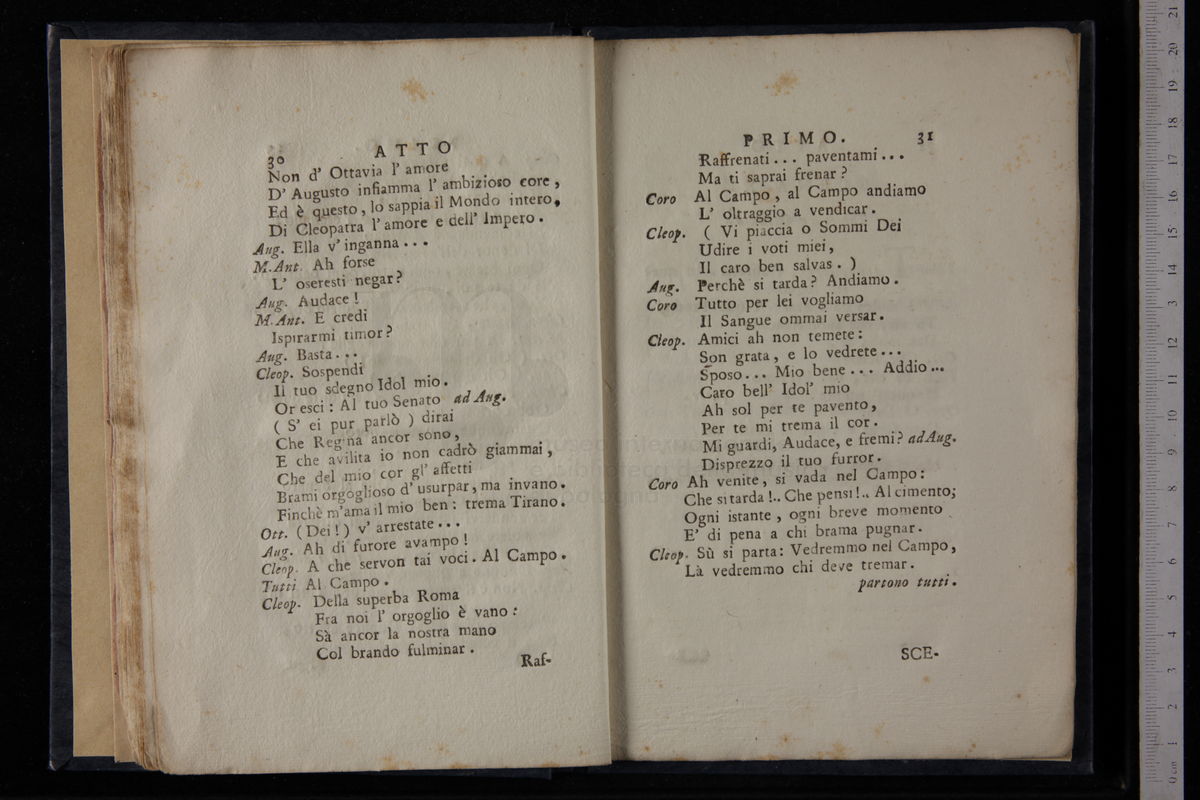 30 ATTO
Non d' Ottavia l' amore
D' Augusto infiamma l' ambizioso core,
Ed è questo, lo sappia il Mondo intero,
Di Cleopatra l' amore e dell' Impero.
Aug. Ella v' inganna...
M. Ant. Ah forse
L' oseresti negar?
Aug. Audace!
M. Ant. E credi
Ispirarmi timor?
Aug. Basta...
Cleop. Sospendi
Il tuo sdegno Idol mio.
Or esci: Al tuo Senato ad Aug.
( S' ei pur parlò ) dirai
Che Regina ancor sono,
E che avilita io non cadrò giammai,
Che del mio cor gl' affetti
Brami orgoglioso d' usurpar, ma invano.
Finchè m'ama il mio ben: trema Tirano.
Ott. (Dei!) v' arrestate...
Aug. Ah di furore avampo!
Cleop. A che servon tai voci. Al Campo.
Tutti Al Campo.
Cleop. Della superba Roma
Fra noi l' orgoglio è vano:
Sà ancor la nostra mano
Col brando fulminar.
Raf-
PRIMO. 31
Raffrenati... paventami...
Ma ti saprai frenar?
Coro Al Campo, al Campo andiamo
L' oltraggio a vendicar.
Cleop. ( Vi piaccia o Sommi Dei
Udire i voti miei,
Il caro ben salvas. )
Aug. Perchè si tarda? Andiamo.
Coro Tutto per lei vogliamo
Il Sangue ommai versar.
Cleop. Amici ah non temete:
Son grata, e lo vedrete...
Sposo... Mio bene... Addio...
Caro bell' Idol' mio
Ah sol per te pavento,
Per te mi trema il cor.
Mi guardi, Audace, e fremi? ad Aug.
Disprezzo il tuo furror.
Coro Ah venite, si vada nel Campo:
Che si tarda!.. Che pensi!.. Al cimento;
Ogni istante, ogni breve momento
E' di pena a chi brama pugnar.
Cleop. Sù si parta: Vedremmo nel Campo,
Là vedremmo chi deve tremar.
partono tutti.
SCE-